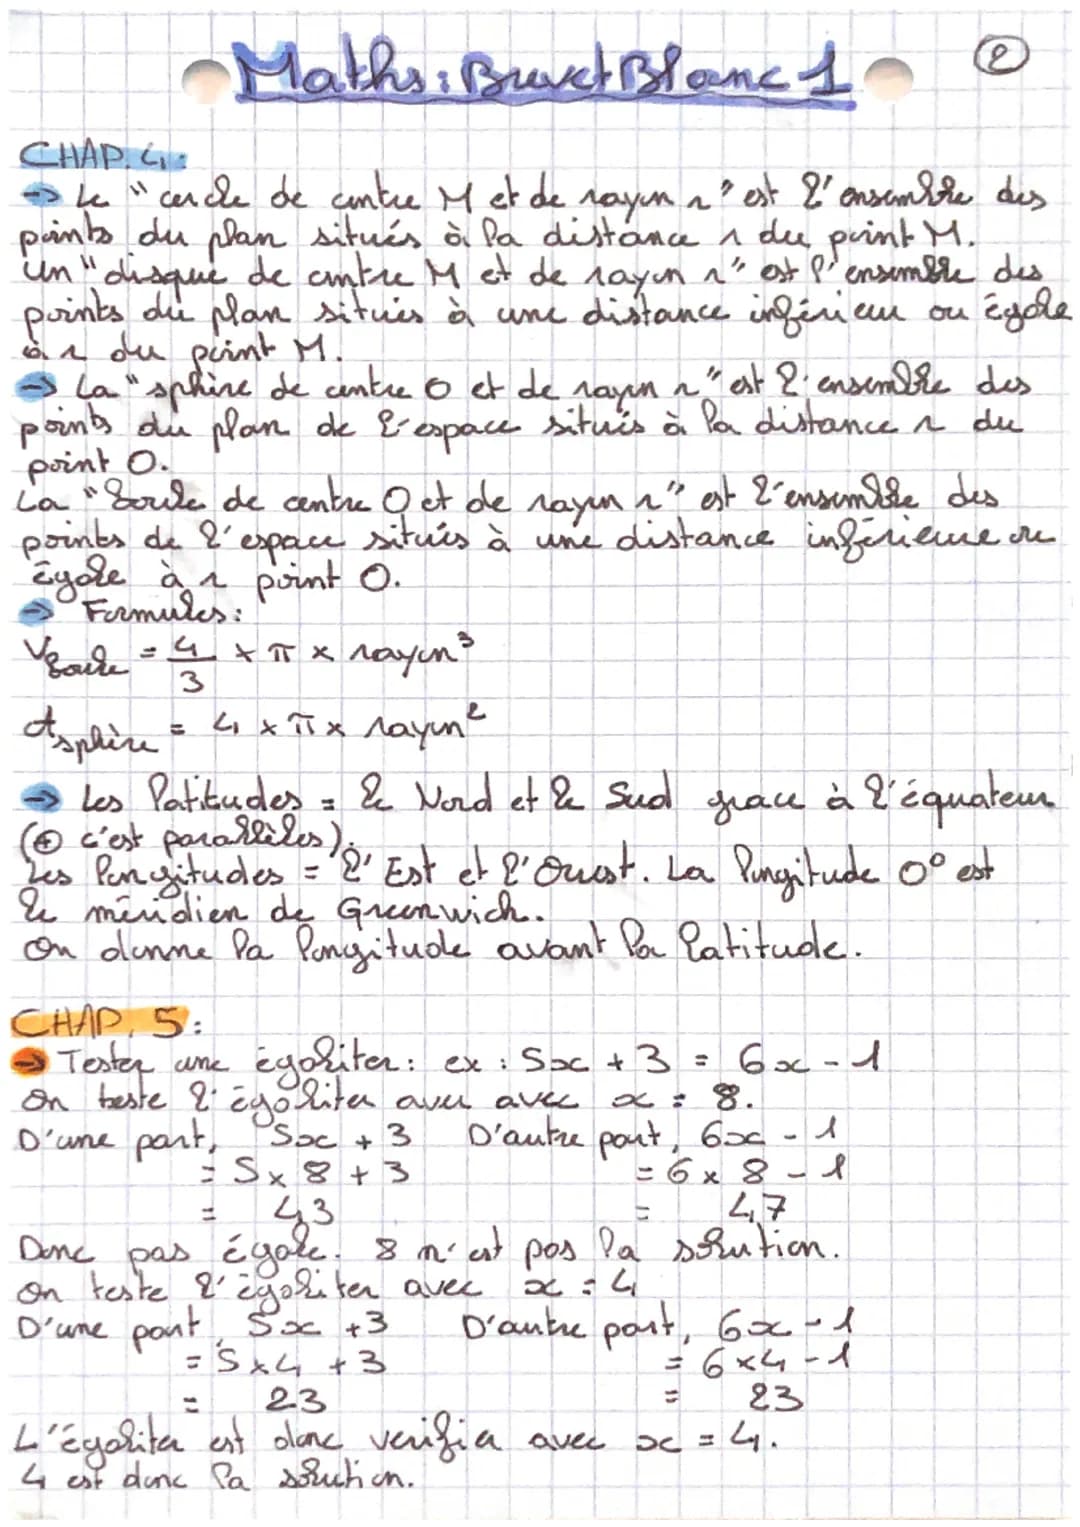 ②
Maths : Brevet Blanc 1
CHAP. 4 :
→ Le "cercle de centre M et de rayon r" est l'ensemble des
points du plan situés à la distance r du point M.
Un "disque de centre M et de rayon r" est l'ensemble des
points du plan situés à une distance inférieur ou égale
à r du point M.
→ La "sphère de centre O et de rayon r" est l'ensemble des
points du plan de l'espace situés à la distance r du
point O.
La "boule de centre O et de rayon r" est l'ensemble des
points de l'espace situés à une distance inférieure ou
égale à r point O.
→ Formules :
Vboule = 4/3 × π × rayon³
Asphère = 4 × π × rayon²
→ Les latitudes = le Nord et le Sud grace à l'équateur
(⊕ c'est parallèles).
Les longitudes = l'Est et l'Ouest. La longitude 0° est
le méridien de Greenwich.
On donne la longitude avant la latitude.
CHAP. 5 :
→ Tester une égaliter : ex : 5x + 3 = 6x - 1
On teste l'égaliter avec avec x = 8.
D'une part, 5x + 3 D'autre part, 6x - 1
= 5 × 8 + 3 = 6 × 8 - 1
= 43 = 47
Donc pas égale. 8 n'est pas la solution.
On teste l'égaliter avec x = 4
D'une part, 5x + 3 D'autre part, 6x - 1
= 5 × 4 + 3 = 6 × 4 - 1
= 23 = 23
L'égaliter est donc verifier avec x = 4.
4 est donc la solution.